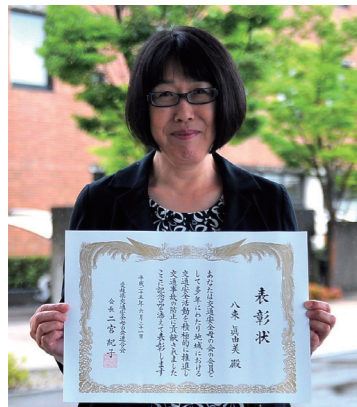 表彰状
八束 眞由美 殿
あなたは交通安全母の会の会員と
して多年にわたり地域における
交通安全活動を積極的に推進し
交通事故の防止に貢献されました
ここに記念品を添えて表彰します
平成二十五年六月二十一日
会長 二宮 紀子